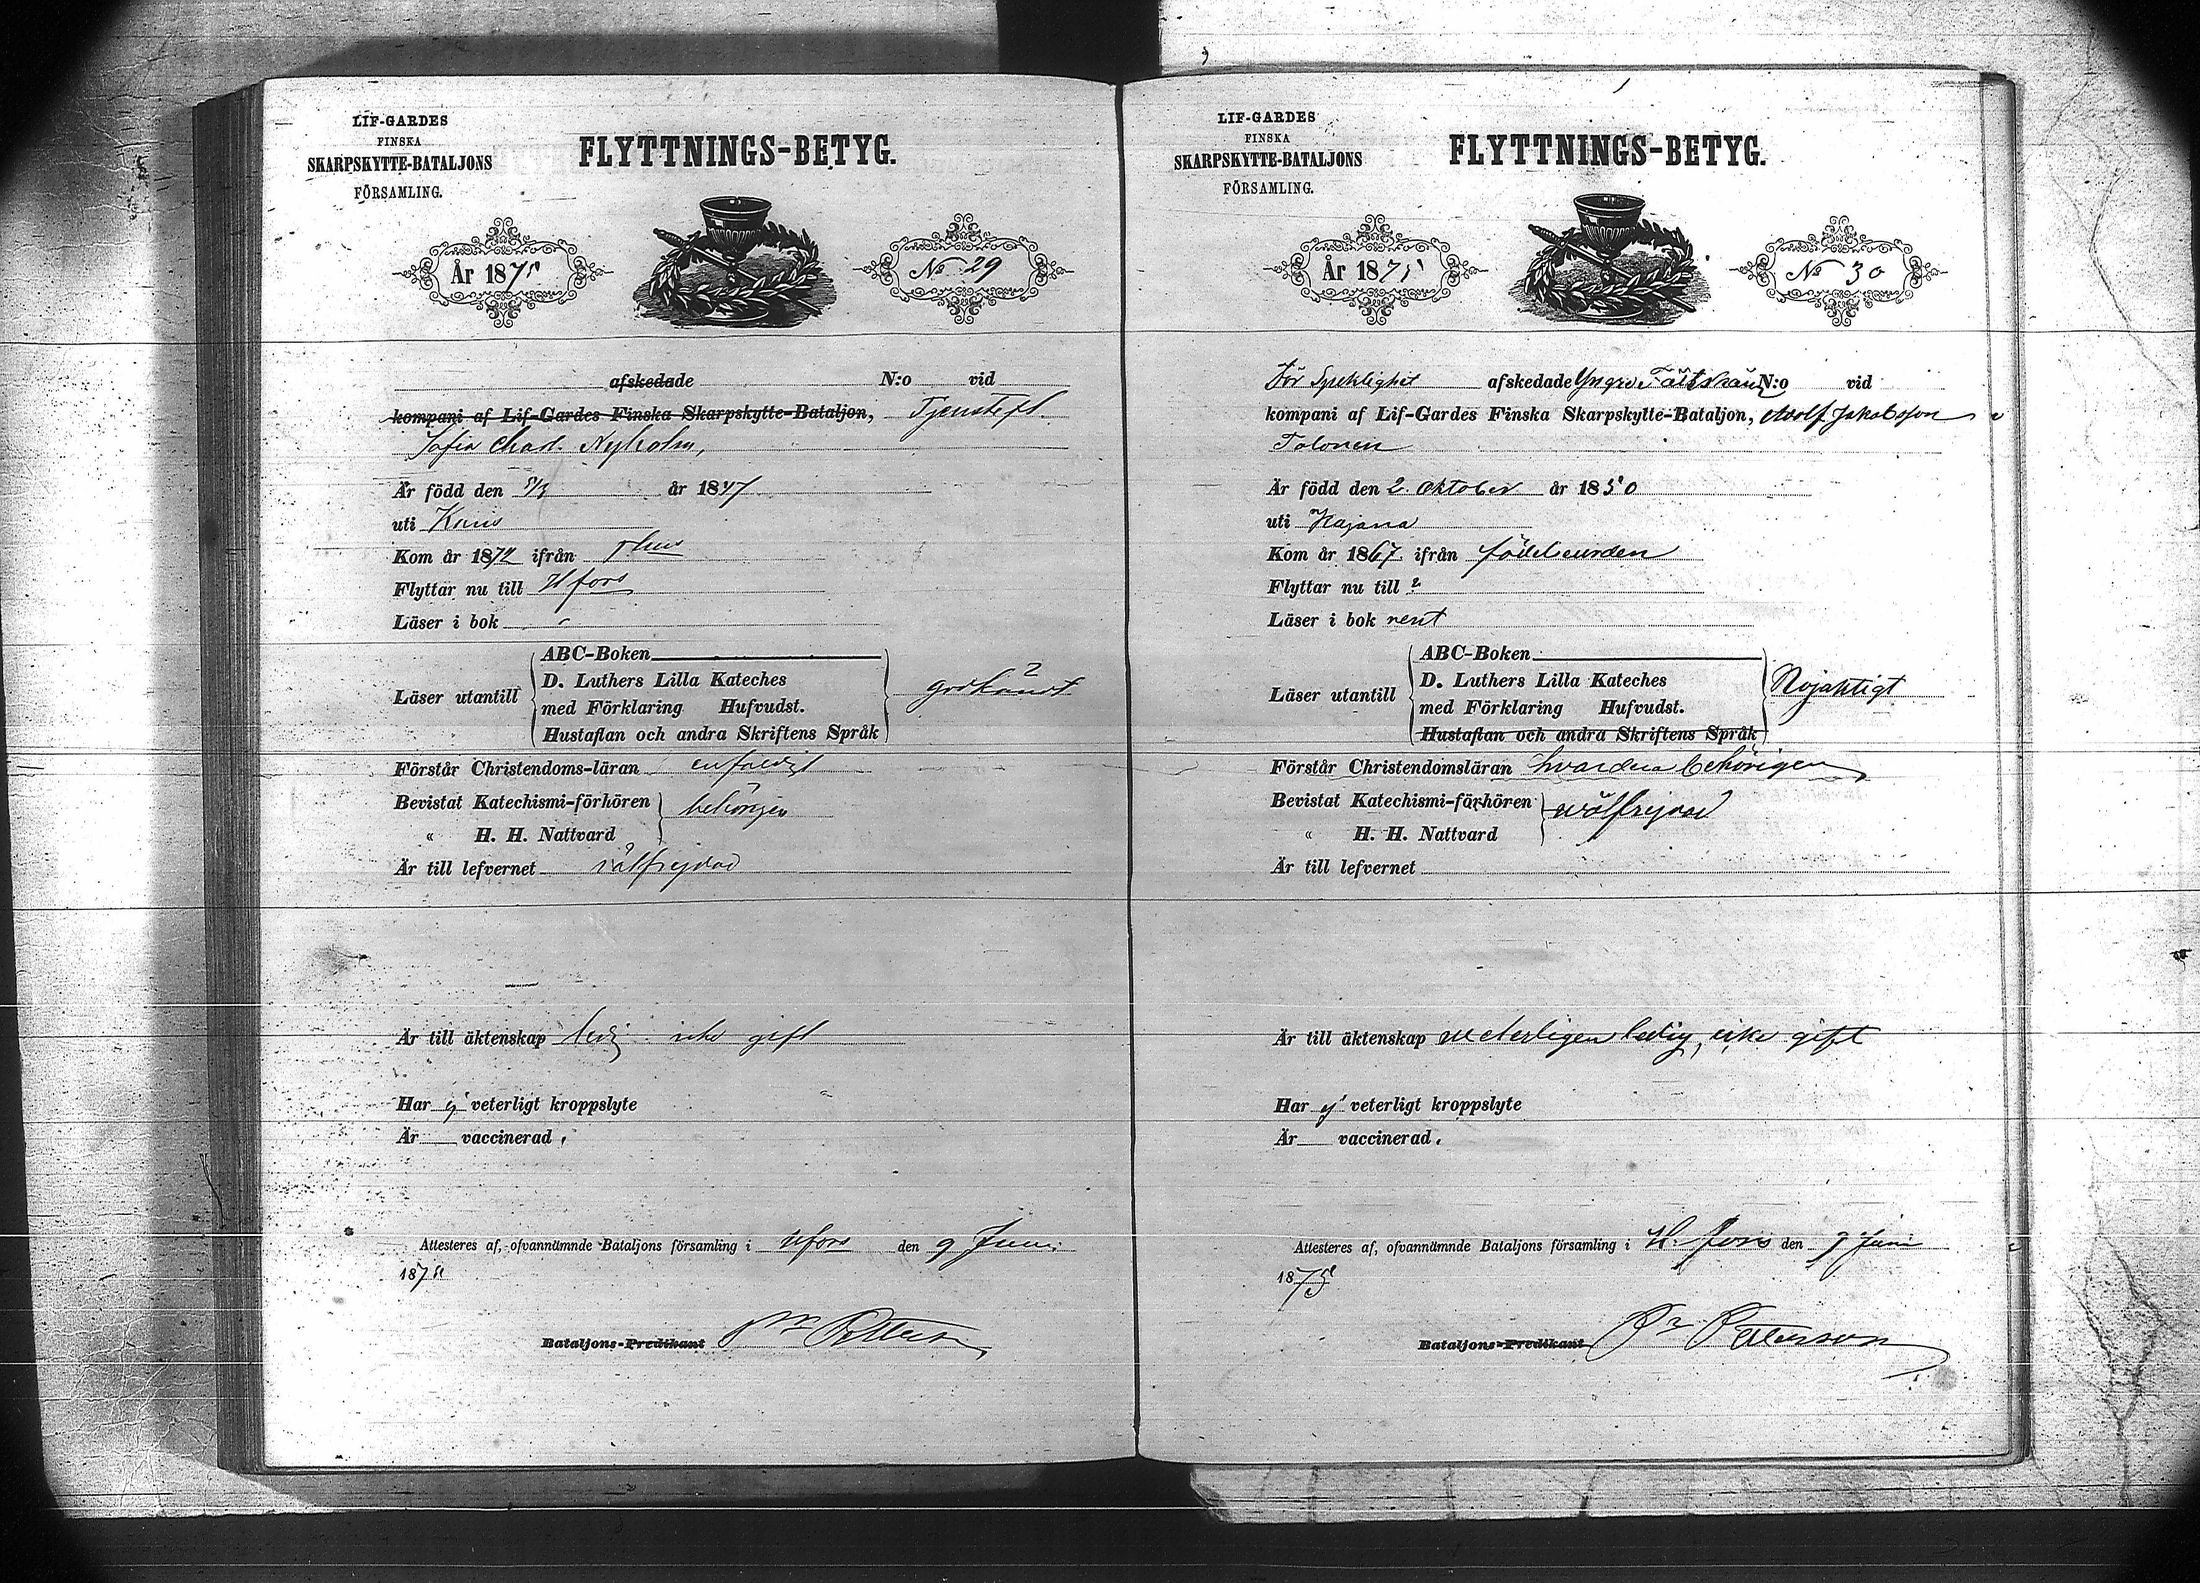 LIF-GARDES
FINSKA
SKARPSKYTTE-BATALJONS
FÖRSAMLING.
FLYTTNINGS-BETYG.
År 1875
No 29
afskedade N:o vid
kompani af Lif-Gardes Finska Skarpskytte-Bataljon,
Sofia Nyholm,
Är född den år 1847
uti Karis
Kom år 1872 ifrån
Flyttar nu till Hfors
Läser i bok
Läser utantill
ABC-Boken
D. Luthers Lilla Kateches
med Förklaring Hufvudst.
Hustaflan och andra Skriftens Språk
godkändt
Förstår Christendoms-läran enfaldigt
Bevistat Katechismi-förhören
" H. H. Nattvard
behörigen
Är till lefvernet välfrejdad
Är till äktenskap ledig icke gift
Har ej veterligt kroppslyte
Är vaccinerad.
Attesteres af, ofvannämnde Bataljons församling i Hfors den 9 Juni
1875
Bataljons-Predikant
LIF-GARDES
FINSKA
SKARPSKYTTE-BATALJONS
FÖRSAMLING.
FLYTTNINGS-BETYG.
År 1875
No 30
För Sjuklighet afskedade Yngre N:o vid
kompani af Lif-Gardes Finska Skarpskytte-Bataljon, Adolf Jakobsson
Tolonen
Är född den 2. Oktober år 1850
uti Kajana
Kom år 1867 ifrån födelseorden
Flyttar nu till ?
Läser i bok rent
Läser utantill
ABC-Boken
D. Luthers Lilla Kateches
med Förklaring Hufvudst.
Hustaflan och andra Skriftens Språk
Nöjaktigt
Förstår Christendomsläran behörigen
Bevistat Katechismi-förhören
" H. H. Nattvard
välfrejdad
Är till lefvernet
Är till äktenskap veterligen ledig, icke gift
Har ej veterligt kroppslyte
Är vaccinerad.
Attesteres af, ofvannämnde Bataljons församling i H:fors den 9 Juni
1875
Bataljons-Predikant Petterson